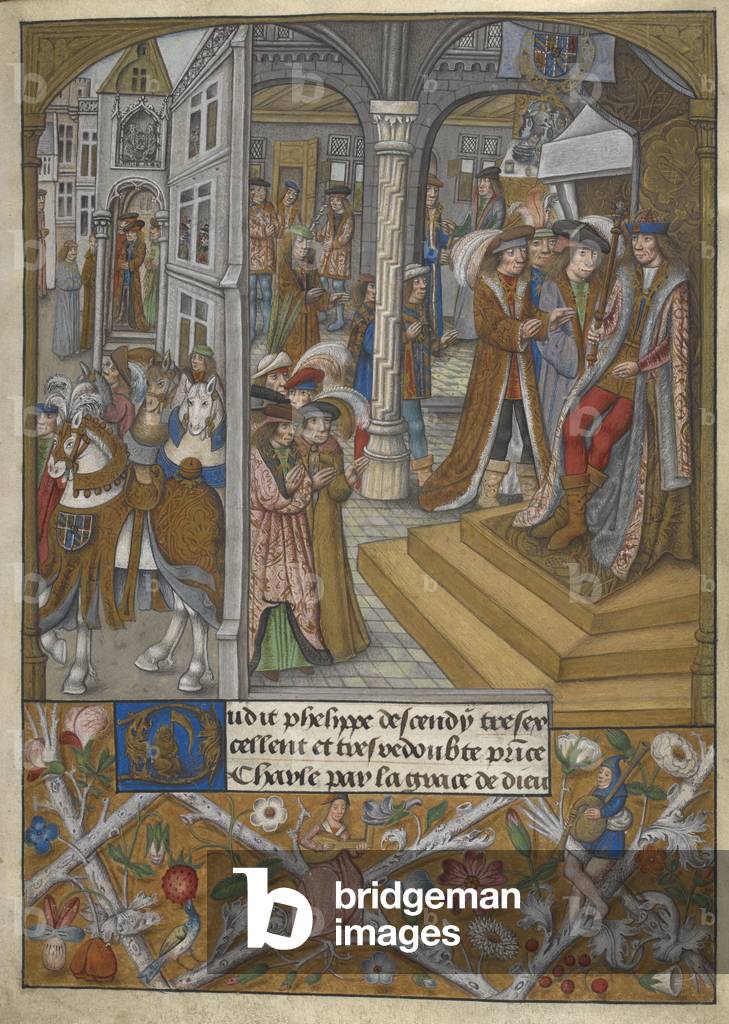 Dudit phelippe descendy tresex
cellent et tresredoubte prīce
Charle par la grace de dieu
bridgeman
images